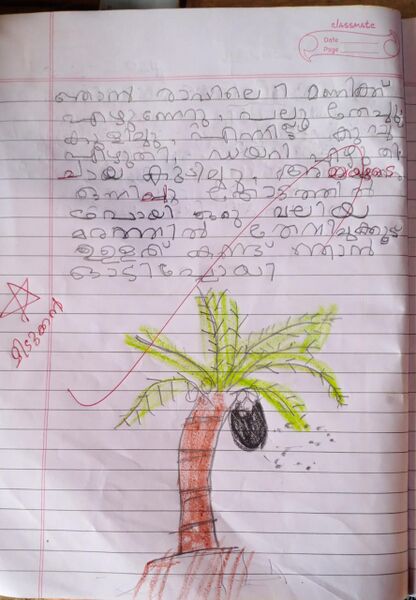 classmate
Date
Page
ഞാൻ രാവിലെ 7 മണിക്ക്
എഴുന്നേറ്റു, പല്ലു തേച്ചു
കുളിച്ചു, എന്നിട്ട് കുറച്ച്
എഴുതി, ഡയറി എഴുതി
ചായ കുടിച്ചു, അമ്മയുടെ
ഒന്നിച്ചു
പോയി ഒരു വലിയ
മരത്തിൽ തേനീച്ചക്കൂട്
ഉള്ളത് കണ്ട് ഞാൻ
ഓടിപ്പോയി
മിടുക്കൻ